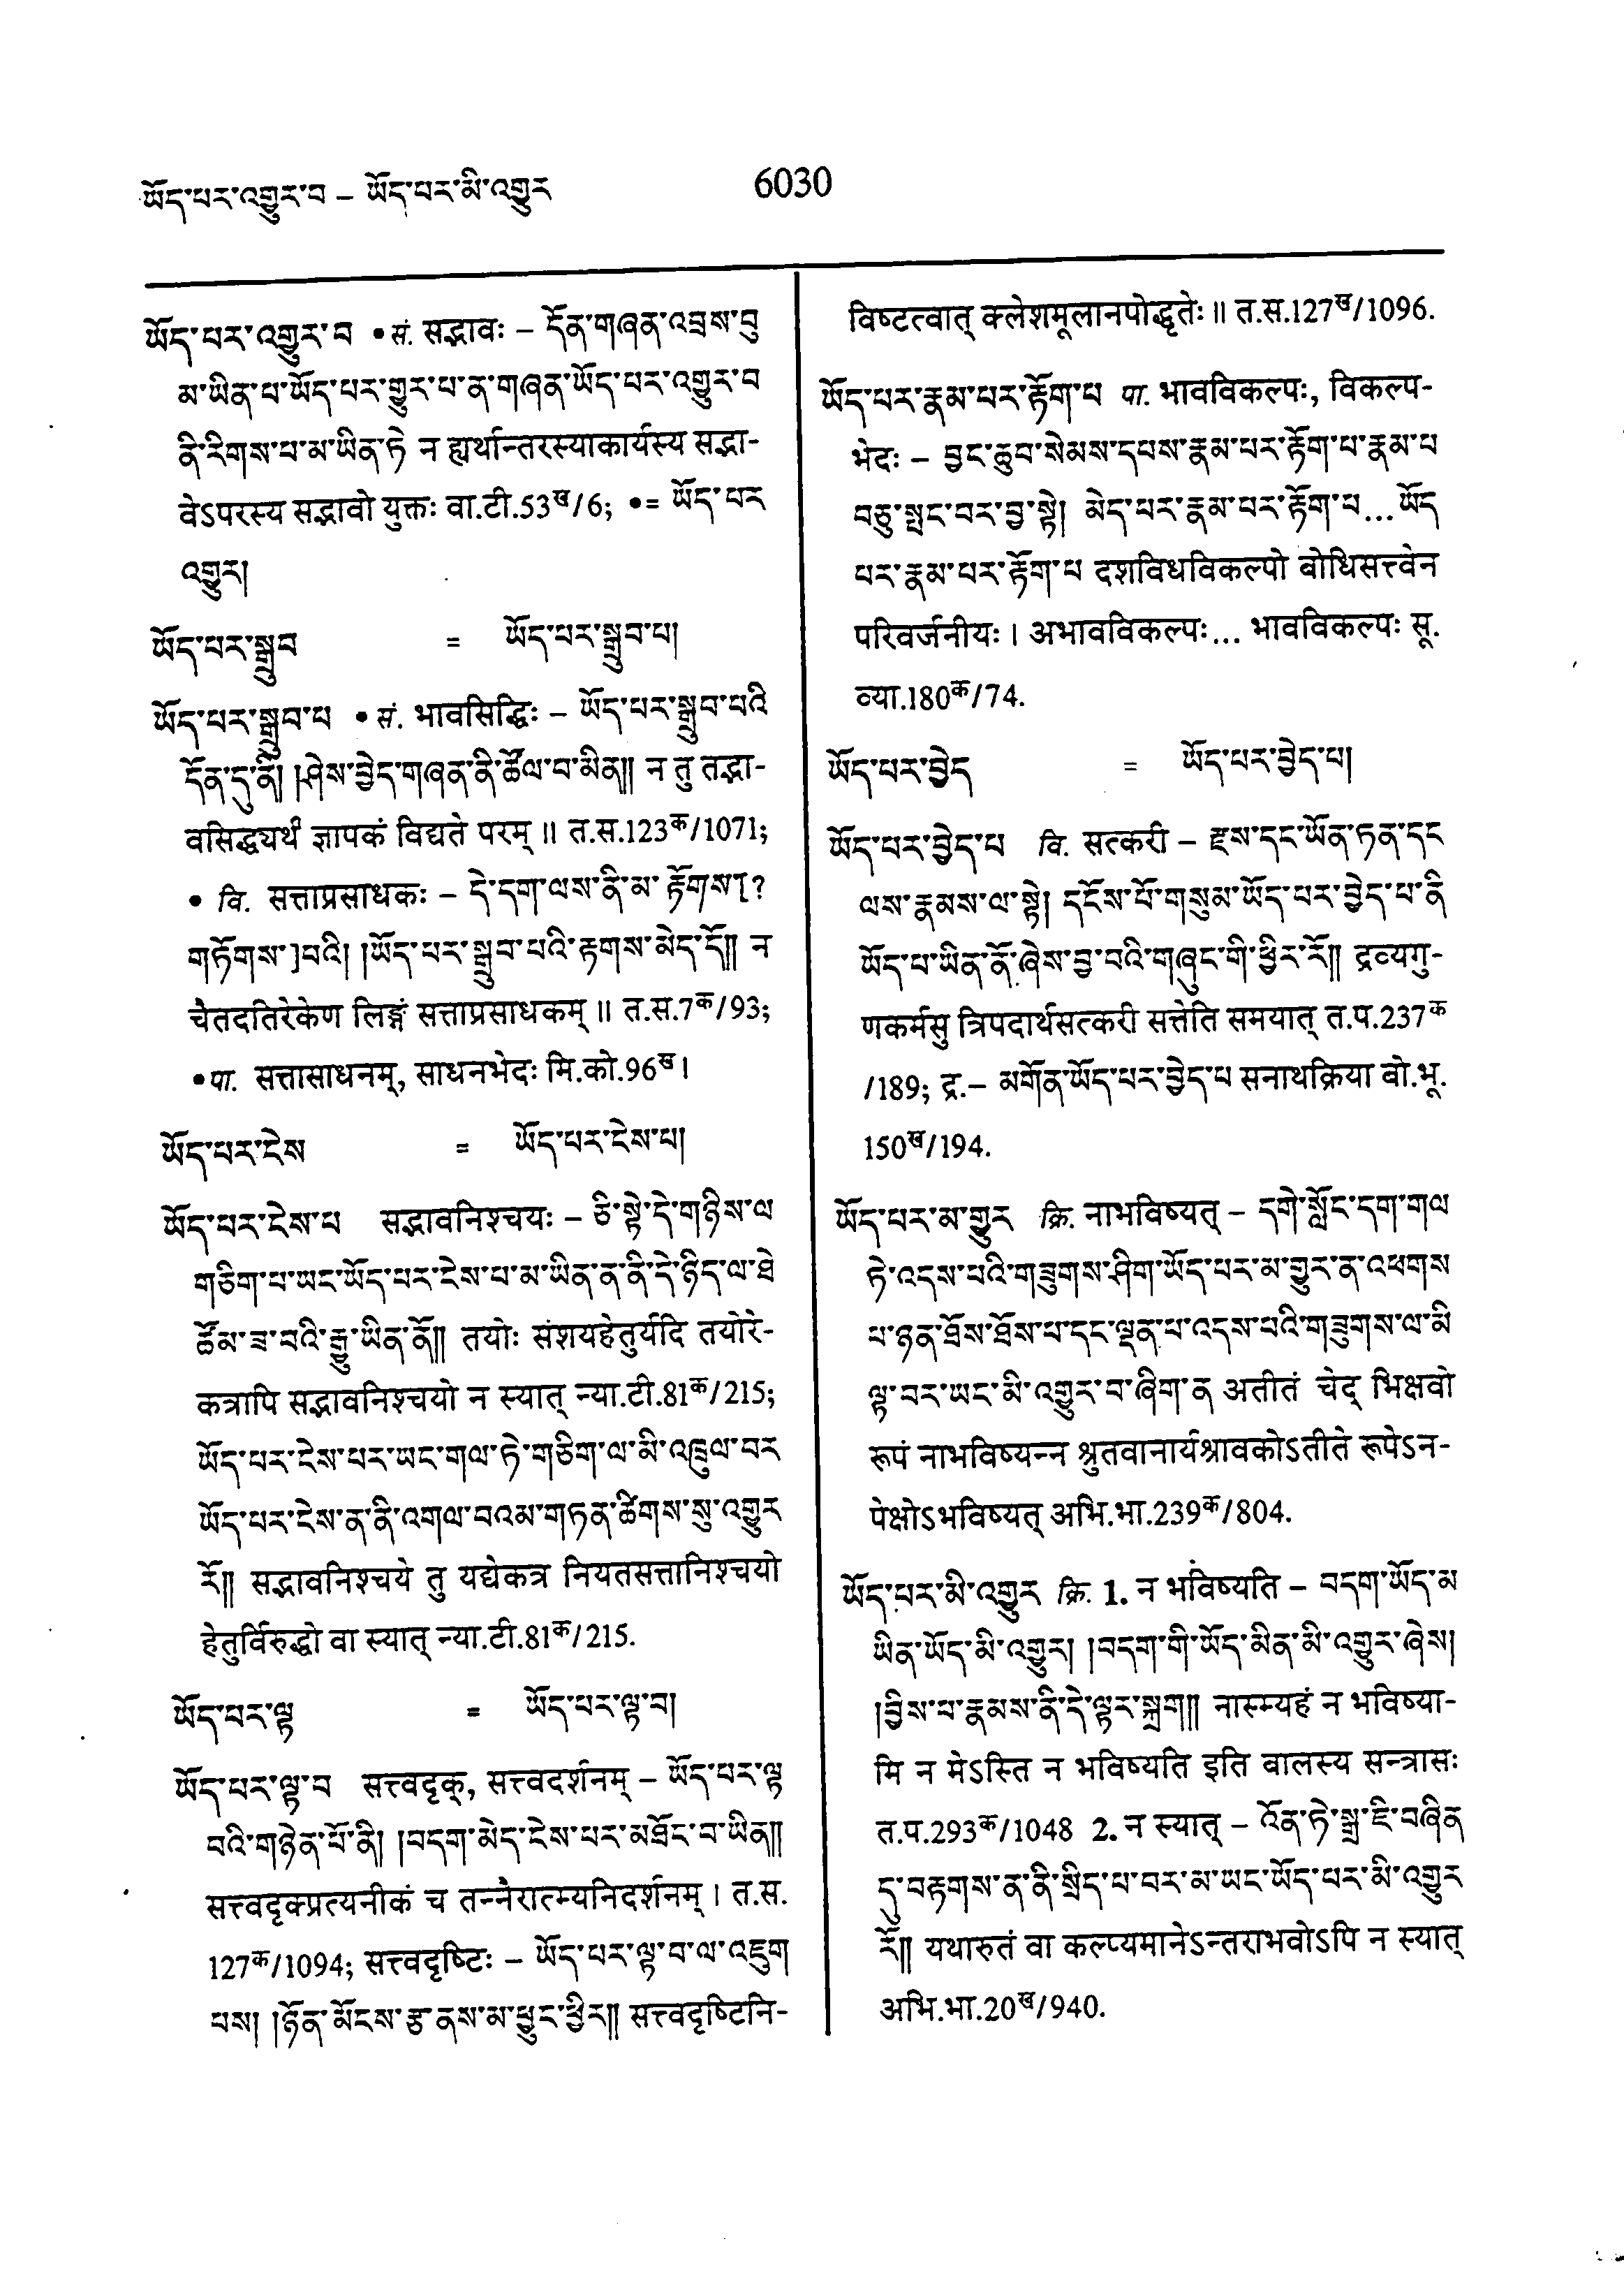 ཡོད་པར་འགྱུར་བ – ཡོད་པར་མི་འགྱུར
6030
ཡོད་པར་འགྱུར་བ • सं. सद्भावः – དོན་གཞན་འབྲས་བུ
མ་ཡིན་པ་ཡོད་པར་གྱུར་པ་ན་གཞན་ཡོད་པར་འགྱུར་བ
ནི་རིགས་པ་མ་ཡིན་ཏེ न ह्यर्थान्तरस्याकार्यस्य सद्भा-
वेऽपरस्य सद्भावो युक्तः वा.टी.53ख/6; •= ཡོད་པར
འགྱུར།
ཡོད་པར་སྒྲུབ = ཡོད་པར་སྒྲུབ་པ།
ཡོད་པར་སྒྲུབ་པ • सं. भावसिद्धिः – ཡོད་པར་སྒྲུབ་པའི
དོན་དུ་ནི། །ཤེས་བྱེད་གཞན་ནི་ཚོལ་བ་མིན།། न तु तद्भा-
वसिद्ध्यर्थं ज्ञापकं विद्यते परम् ॥ त.स.123क/1071;
• वि. सत्ताप्रसाधकः – དེ་དག་ལས་ནི་མ་ རྟོགས་[?
གཏོགས་]པའི། །ཡོད་པར་སྒྲུབ་པའི་རྟགས་མེད་དོ།། न
चैतदतिरेकेण लिङ्गं सत्ताप्रसाधकम् ॥ त.स.7क/93;
• पा. सत्तासाधनम्, साधनभेदः मि.को.96ख।
ཡོད་པར་ངེས = ཡོད་པར་ངེས་པ།
ཡོད་པར་ངེས་པ सद्भावनिश्चयः – ཅི་སྟེ་དེ་གཉིས་ལ
གཅིག་པ་ཡང་ཡོད་པར་ངེས་པ་མ་ཡིན་ན་ནི་དེ་ཉིད་ལ་ཐེ
ཚོམ་ཟ་བའི་རྒྱུ་ཡིན་ནོ།། तयोः संशयहेतुर्यदि तयोरे-
कत्रापि सद्भावनिश्चयो न स्यात् न्या.टी.81क/215;
ཡོད་པར་ངེས་པར་ཡང་གལ་ཏེ་གཅིག་ལ་མི་འཁྲུལ་བར
ཡོད་པར་ངེས་ན་ནི་འགལ་བའམ་གཏན་ཚིགས་སུ་འགྱུར
རོ།། सद्भावनिश्चये तु यद्येकत्र नियतसत्तानिश्चयो
हेतुर्विरुद्धो वा स्यात् न्या.टी.81क/215.
ཡོད་པར་ལྟ = ཡོད་པར་ལྟ་བ།
ཡོད་པར་ལྟ་བ सत्त्वदृक्, सत्त्वदर्शनम् – ཡོད་པར་ལྟ
བའི་གཉེན་པོ་ནི། །བདག་མེད་ངེས་པར་མཐོང་བ་ཡིན།།
सत्त्वदृक्प्रत्यनीकं च तन्नैरात्म्यनिदर्शनम् । त.स.
127क/1094; सत्त्वदृष्टिः – ཡོད་པར་ལྟ་བ་ལ་འཇུག
པས། །ཉོན་མོངས་རྩ་ནས་མ་ཕྱུང་ཕྱིར།། सत्त्वदृष्टिनि-
विष्टत्वात् क्लेशमूलानपोद्धृतेः ॥ त.स.127ख/1096.
ཡོད་པར་རྣམ་པར་རྟོག་པ पा. भावविकल्पः, विकल्प-
भेदः – བྱང་ཆུབ་སེམས་དཔས་རྣམ་པར་རྟོག་པ་རྣམ་པ
བཅུ་སྤང་བར་བྱ་སྟེ། མེད་པར་རྣམ་པར་རྟོག་པ...ཡོད
པར་རྣམ་པར་རྟོག་པ दशविधविकल्पो बोधिसत्त्वेन
परिवर्जनीयः । अभावविकल्पः... भावविकल्पः सू.
व्या.180क/74.
ཡོད་པར་བྱེད = ཡོད་པར་བྱེད་པ།
ཡོད་པར་བྱེད་པ वि. सत्करी – རྫས་དང་ཡོན་ཏན་དང
ལས་རྣམས་ལ་སྟེ། དངོས་པོ་གསུམ་ཡོད་པར་བྱེད་པ་ནི
ཡོད་པ་ཡིན་ནོ་ཞེས་བྱ་བའི་གཞུང་གི་ཕྱིར་རོ།། द्रव्यगु-
णकर्मसु त्रिपदार्थसत्करी सत्तेति समयात् त.प.237क
/189; द्र.– མགོན་ཡོད་པར་བྱེད་པ सनाथक्रिया बो.भू.
150ख/194.
ཡོད་པར་མ་གྱུར क्रि. नाभविष्यत् – དགེ་སློང་དག་གལ
ཏེ་འདས་པའི་གཟུགས་ཤིག་ཡོད་པར་མ་གྱུར་ན་འཕགས
པ་ཉན་ཐོས་ཐོས་པ་དང་ལྡན་པ་འདས་པའི་གཟུགས་ལ་མི
ལྟ་བར་ཡང་མི་འགྱུར་བ་ཞིག་ན अतीतं चेद् भिक्षवो
रूपं नाभविष्यन्न श्रुतवानार्यश्रावकोऽतीते रूपेऽन-
पेक्षोऽभविष्यत् अभि.भा.239क/804.
ཡོད་པར་མི་འགྱུར क्रि. 1. न भविष्यति – བདག་ཡོད་མ
ཡིན་ཡོད་མི་འགྱུར། །བདག་གི་ཡོད་མིན་མི་འགྱུར་ཞེས།
།བྱིས་པ་རྣམས་ནི་དེ་ལྟར་སྐྲག།། नास्म्यहं न भविष्या-
मि न मेऽस्ति न भविष्यति इति बालस्य सन्त्रासः
त.प.293क/1048 2. न स्यात् – འོན་ཏེ་སྒྲ་ཇི་བཞིན
དུ་བརྟགས་ན་ནི་སྲིད་པ་བར་མ་ཡང་ཡོད་པར་མི་འགྱུར
རོ།། यथारुतं वा कल्प्यमानेऽन्तराभवोऽपि न स्यात्
अभि.भा.20ख/940.